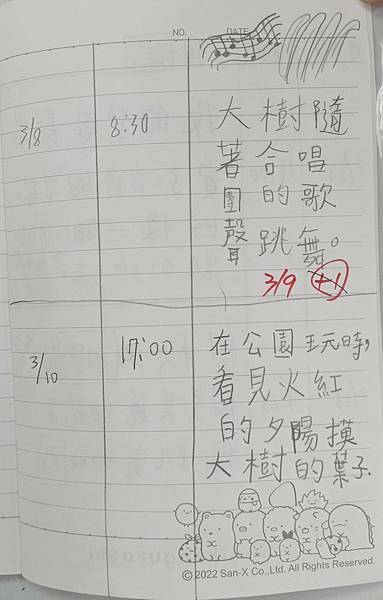 NO.
DATE
3/8
8:30
大樹隨
著合唱
團的歌
聲跳舞。
3/9 +1
3/10
17:00
在公園玩時,
看見火紅
的夕陽摸
大樹的葉子.
© 2022 San-X Co.,Ltd. All Rights Reserved.